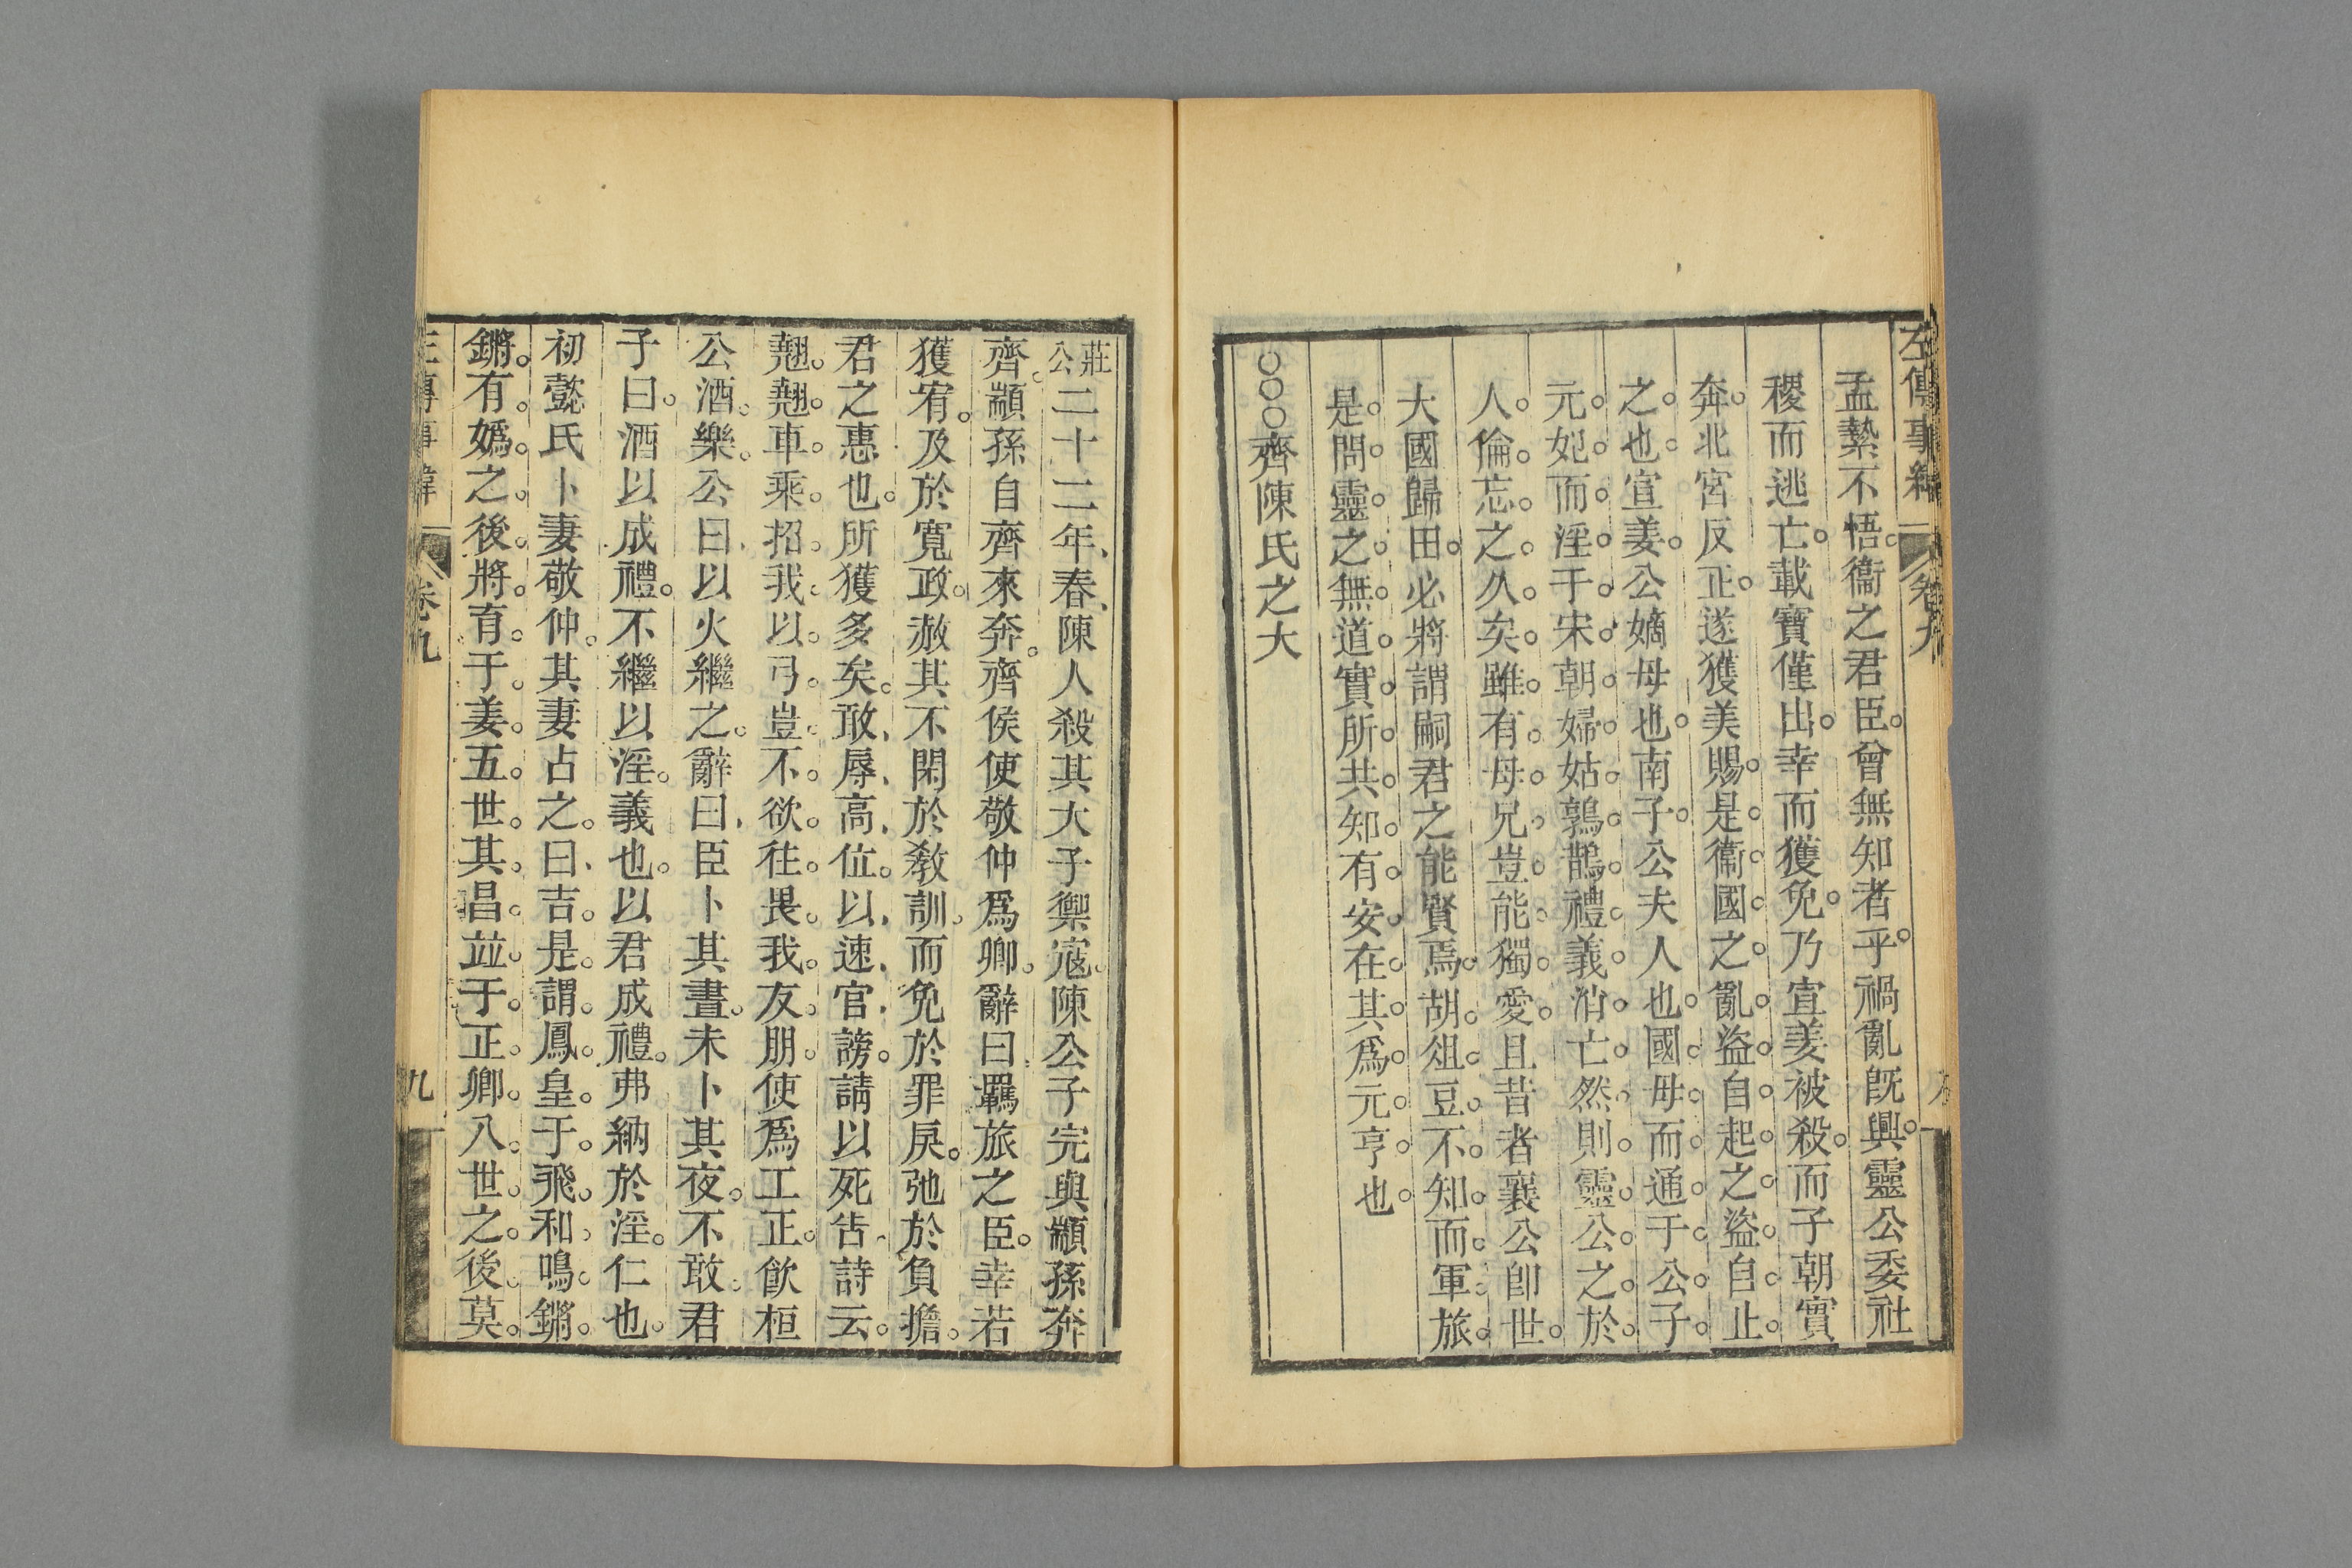 左傳事緯
卷九
孟縶不悟衞之君臣曾無知者乎禍亂旣興靈公委社
稷而逃亡載寶僅出幸而獲免乃宣姜被殺而子朝實
奔北宮反正遂獲美賜是衞國之亂盜自起之盜自止
之也宣姜公嫡母也南子公夫人也國母而通于公子
元妃而淫于宋朝婦姑鶉鵲禮義消亡然則靈公之於
人倫忘之久矣雖有母兄豈能獨愛且昔者襄公卽世
大國歸田必將謂嗣君之能賢焉胡俎豆不知而軍旅
是問靈之無道實所共知有安在其爲元亨也
○○○齊陳氏之大
莊公二十二年春陳人殺其大子禦寇陳公子完與顓孫奔
齊顓孫自齊來奔齊侯使敬仲爲卿辭曰羈旅之臣幸若
獲宥及於寬政赦其不閑於敎訓而免於罪戾弛於負擔
君之惠也所獲多矣敢辱高位以速官謗請以死告詩云
翹翹車乘招我以弓豈不欲往畏我友朋使爲工正飮桓
公酒樂公曰以火繼之辭曰臣卜其晝未卜其夜不敢君
子曰酒以成禮不繼以淫義也以君成禮弗納於淫仁也
初懿氏卜妻敬仲其妻占之曰吉是謂鳳皇于飛和鳴鏘
鏘有嬀之後將有于姜五世其昌並于正卿八世之後莫
左傳事緯
卷九
九